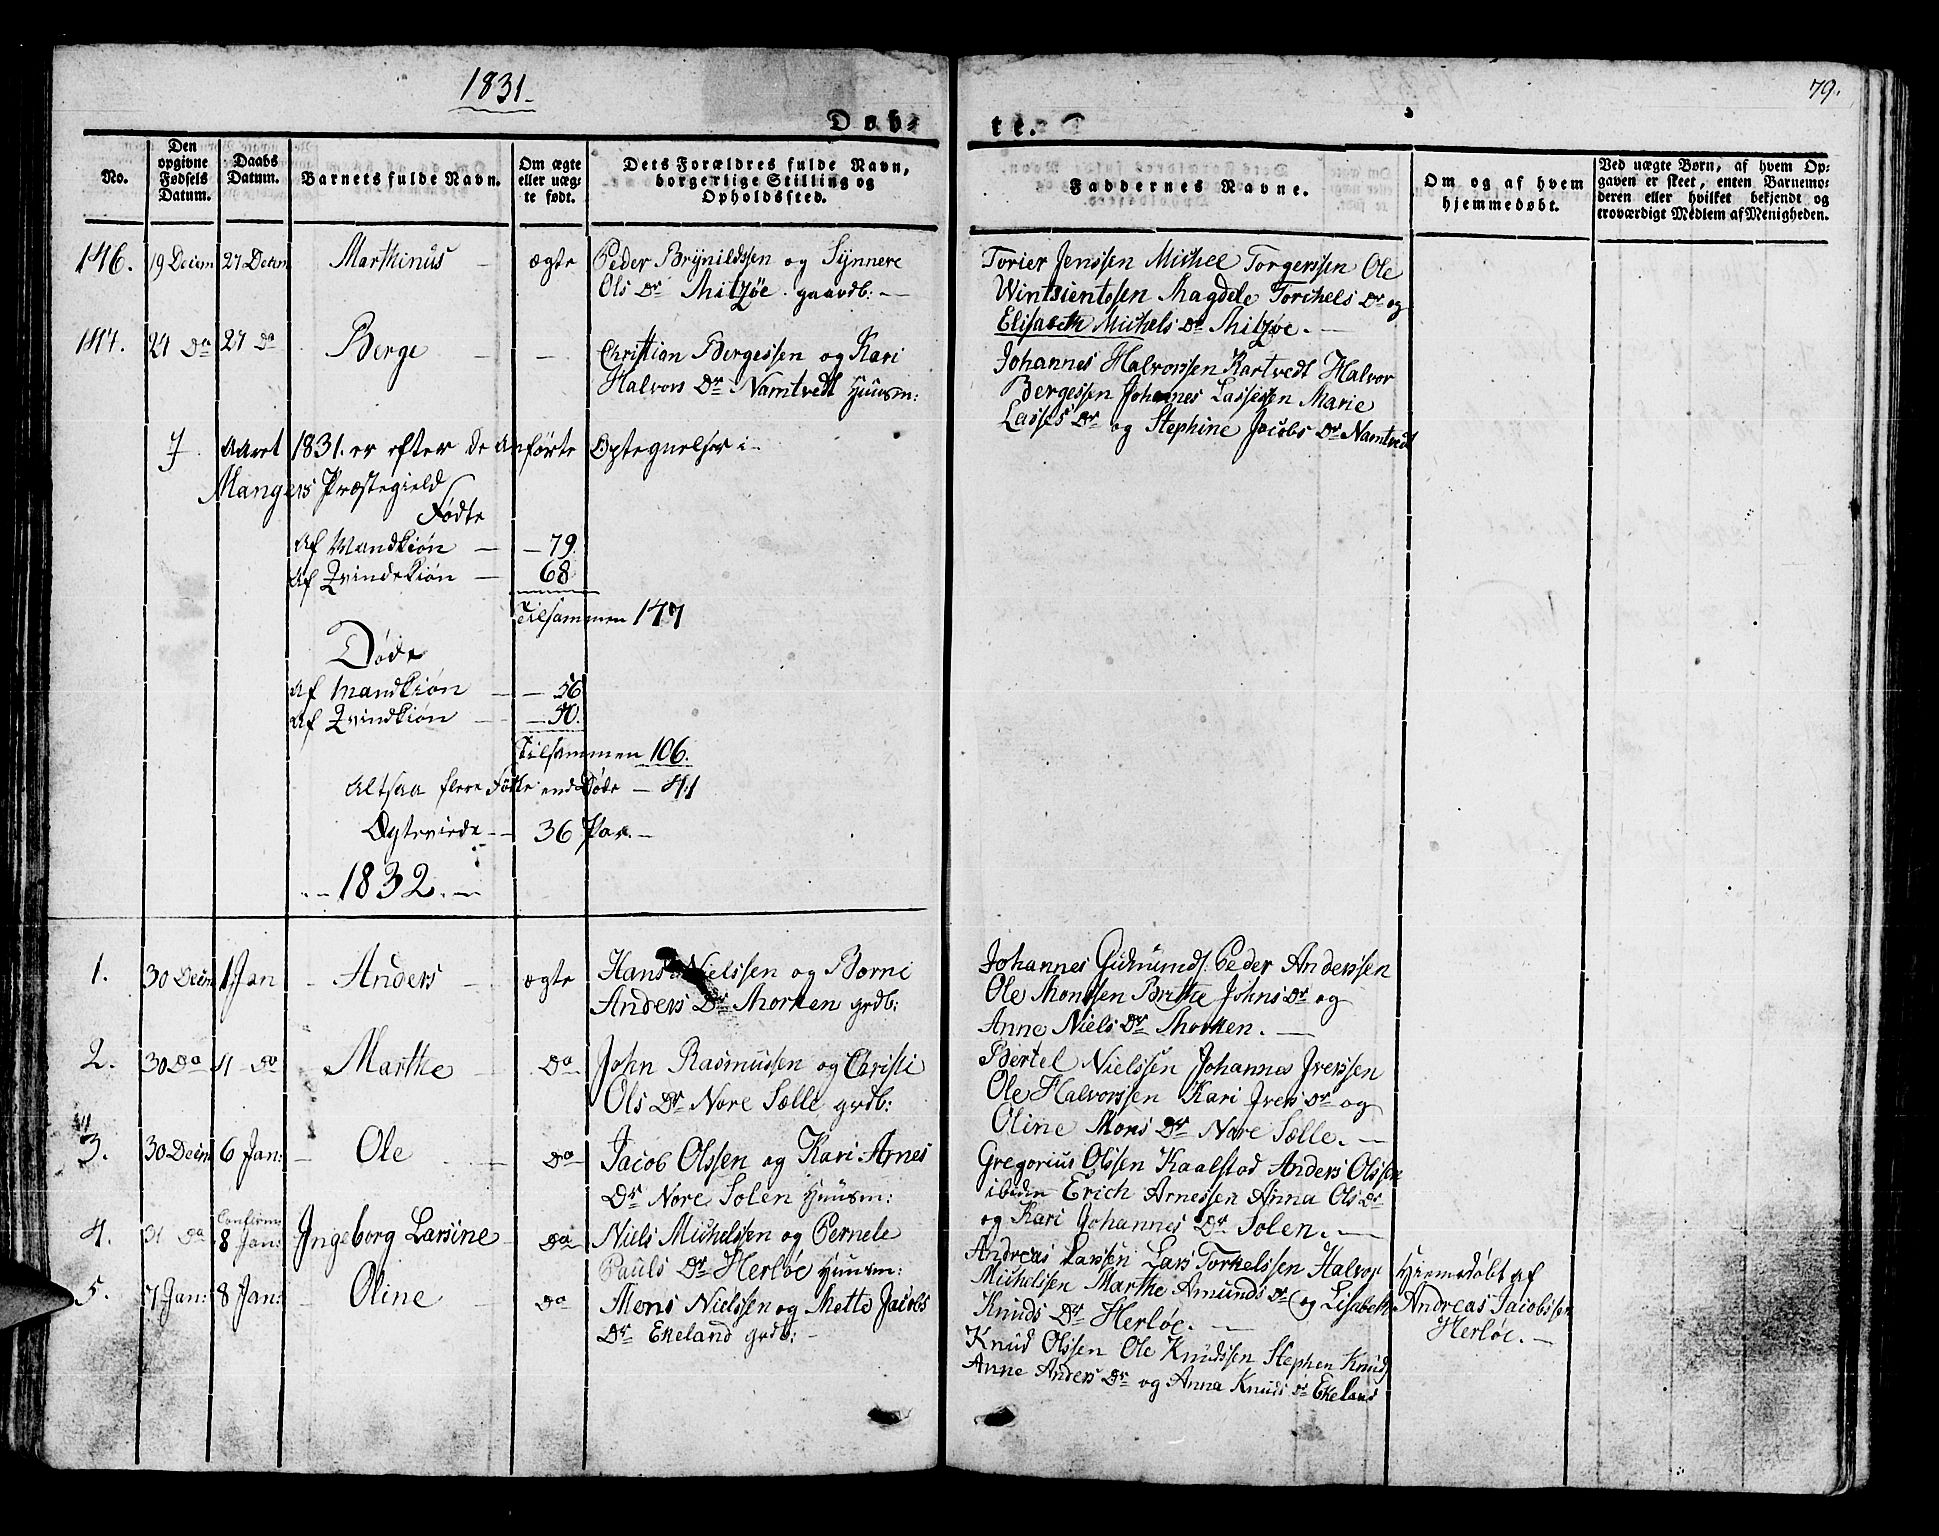 1831.
79.
Døb-
te.
No.
Den opgivne Fødsels Datum.
Daabs Datum.
Barnets fulde Navn.
Om ægte eller uæg- te født.
Dets Forældres fulde Navn, borgerlige Stilling og Opholdssted.
Faddernes Navne.
Om og af hvem hjemmedøbt.
Ved uægte Børn, af hvem Op- gaven er skeet, enten Barnemo- deren eller hvilket bekjendt og troværdigt Medlem af Menigheden.
146. 19 Decem 27 Decem Marthinus ægte Peder Brynildssen og Synnere
Ols Dr gaardb:
Torier Jenssen Michel Torgerssen Ole
Magdele Torchels Dr og
Elisabeth Michels Dr
147. 24 Do 27 Do Berge Christian Bergessen og Kari
Halvors Dr Namtvedt Huusm:
Johannes Halvorssen Kartvedt Halvor
Bergessen Johannes Lassessen Marie
Lasses Dr og Stephine Jacobs Dr Namtvedt
I Aaret 1831. er efter de anførte Optegnelser i
Mangers Præstegield
Fødte
Af Mandkiøn 79.
Af Qvindekiøn 68
Tilsammen 147
Døde
Af Mandkiøn 56
Af Qvindkiøn 50.
Tilsammen 106.
Altsaa flere Fødte end Døde 41
Ægteviede 36 Par.
1832.
1. 30 Decm 1 Jan Anders ægte Hans Nielssen og Borni
Anders Dr Morken grdb:
Johannes Peder Anderssen
Ole Monssen Brithe Johns Dr og
Anne Niels Dr Morken.
2. 30 Do 1 Do Marthe Do John Rasmussen og Christi
Ols Dr Nore Sælle grdb:
Bertel Nielssen Johannes Iverssen
Ole Halvorssen Kari Ivers Dr og
Oline Mons Dr Nore Sælle.
3. 30 Decm 6 Jan: Ole Do Jacob Olssen og Kari Arnes
Dr Nore Solen Huusm:
Gregorius Olssen Kaalstad Anders Olssen
ibiden Erich Arnessen Anna Ols Dr
og Kari Johannes Dr Solen.
4. 31 Do Confirm: 8 Jan: Ingeborg Larsine Do Niels Michelssen og Pernele
Pauls Dr Herløe Huusm:
Andreas Larssen Lars Torkelssen Halvor
Michelssen Marthe Amunds Dr og Lisabeth
Knuds Dr Herløe.
Hiemedøbt af
Andreas Jacobssen
Herløe.
5. 7 Jan: 8 Jan: Oline Do Mons Nielssen og Mette Jacobs
Dr Ekeland grdb:
Knud Olssen Ole Knudssen Stephen Knuds
Anne Anders Dr og Anna Knuds Dr Ekeland